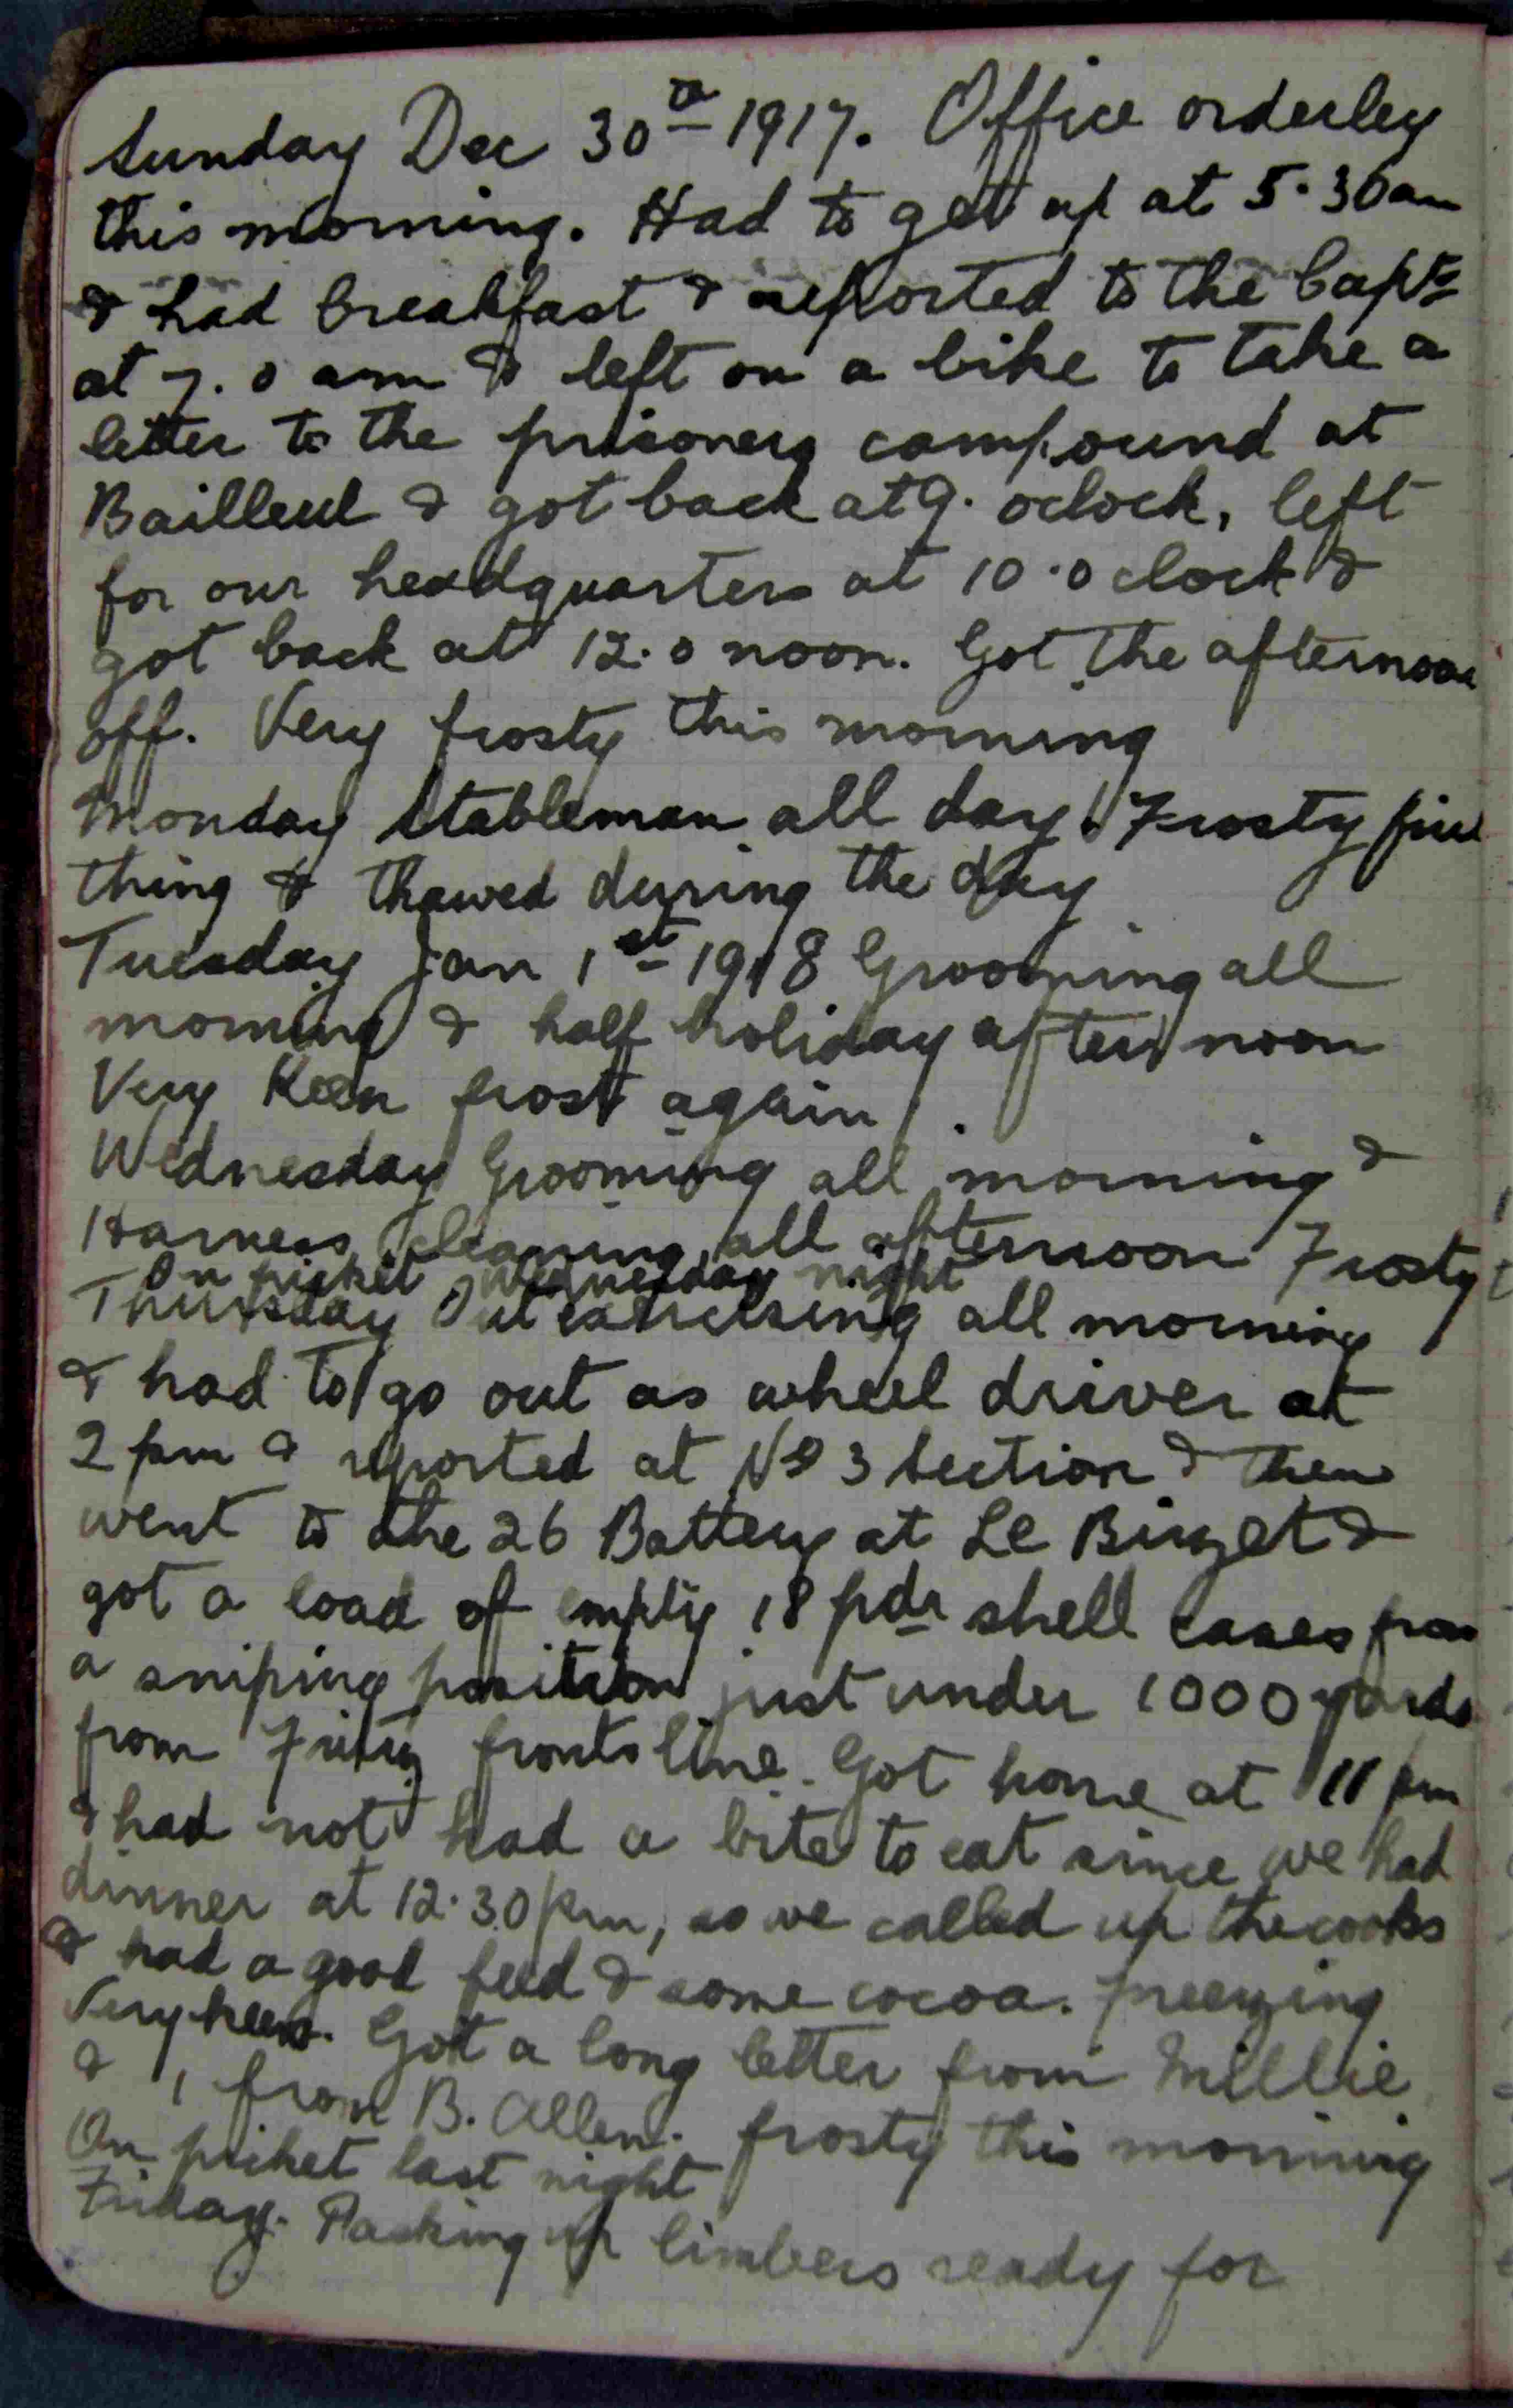 Sunday Dec 30th 1917. Office orderley
this morning. Had to get up at 5.30am
& had breakfast & reported to the Capt
at 7.0 am & left on a bike to take a
letter to the prisoners compound at
Bailleul & got back at 9. oclock, left
for our headquarters at 10.0 clock &
got back at 12.0 noon. Got the afternoon
off. Very frosty this morning
Monday Stableman all day. Frosty first
thing & thawed during the day
Tuesday Jan 1st 1918 Grooming all
morning & half holiday afternoon
Very Keen frost again.
Wednesday Grooming all morning &
Harness cleaning all afternoon Frosty
On picket Wednesday night
Thursday Out exercising all morning
& had to go out as wheel driver at
2 pm & reported at No 3 Section & then
went to the 26 Battery at Le Bizet &
got a load of empty 18 pdr shell cases from
a sniping position just under 1000 yards
from Fritz fronts line. Got home at 11 pm
& had not had a bite to eat since we had
dinner at 12.30 pm, so we called up the cooks
& had a good feed & some cocoa. freezing
Very keen. Got a long letter from Millie
& 1 from B. Allen. frosty this morning
On picket last night
Friday. Packing up limbers ready for